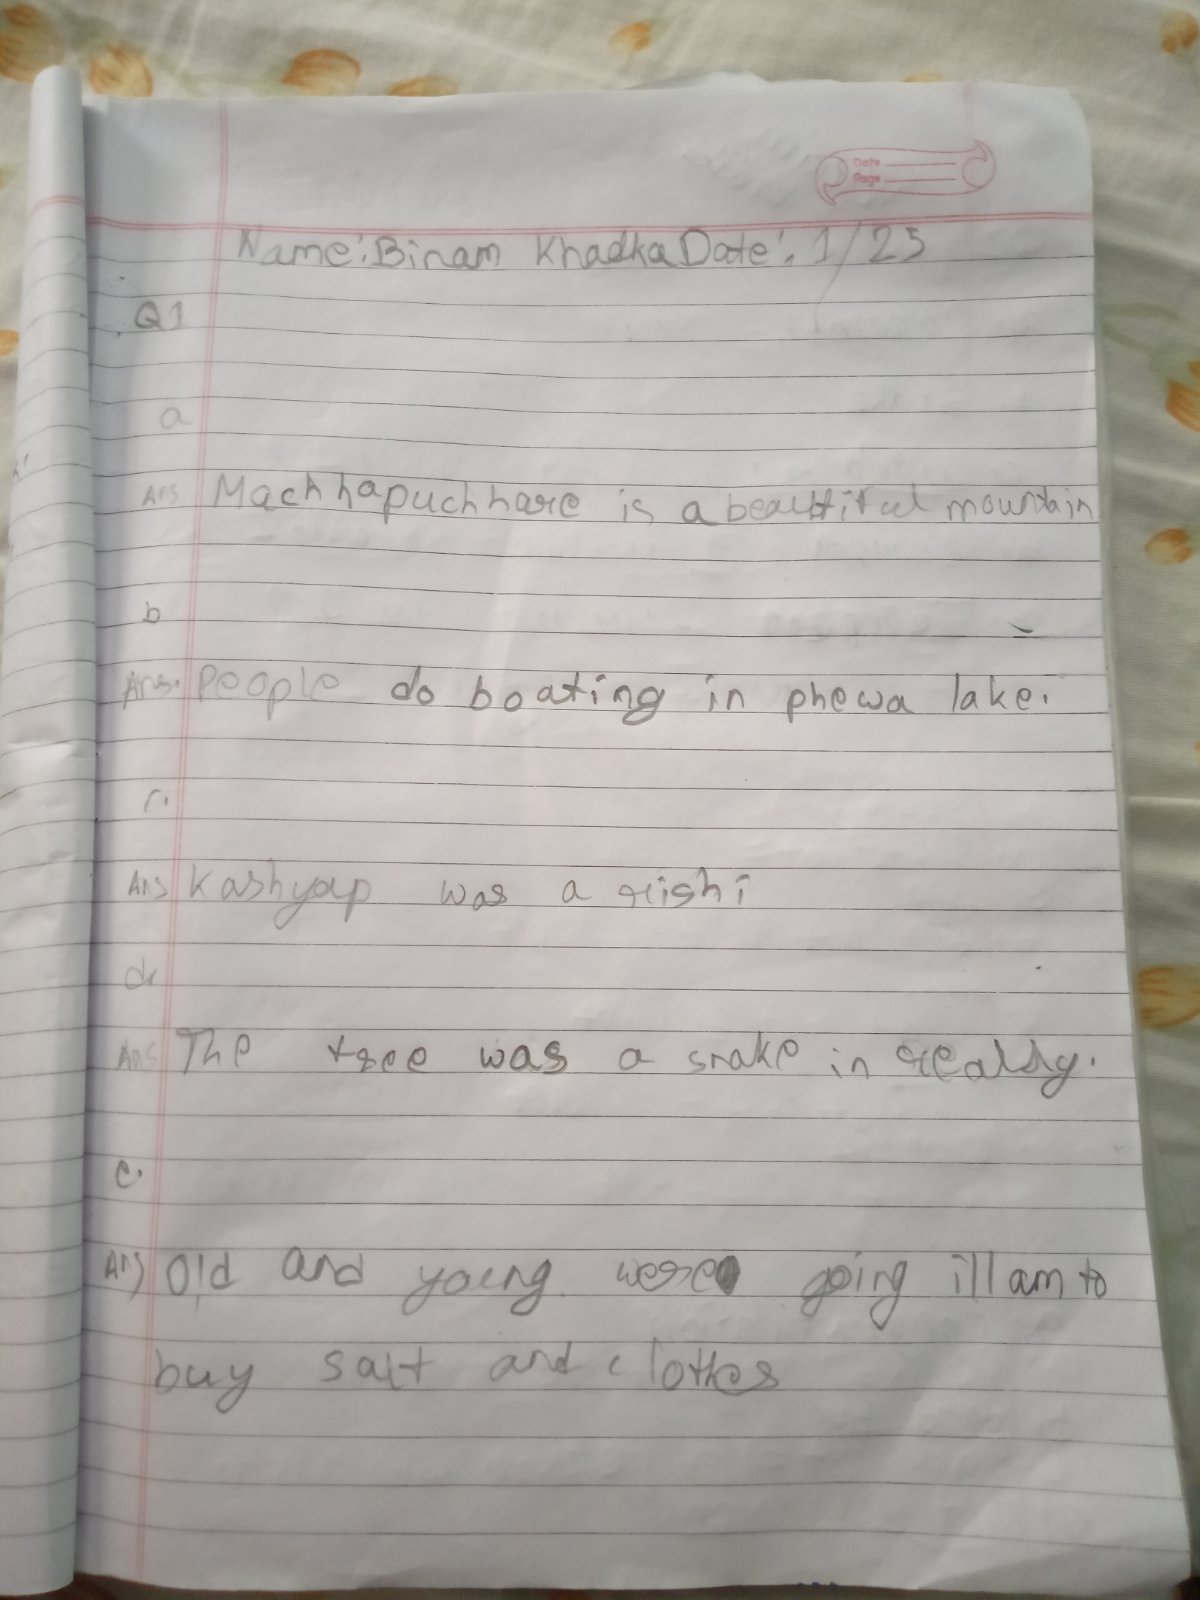 Date
Page
Name: Binam Khadka Date: 1/25
Q1
a
Ans Machhapuchhare is a beautiful mountain
b
Ans. People do boating in phewa lake.
c.
Ans Kashyap was a rishi
d.
Ans The tree was a snake in realsy.
e.
Ans Old and young were going illam to
buy salt and clothes